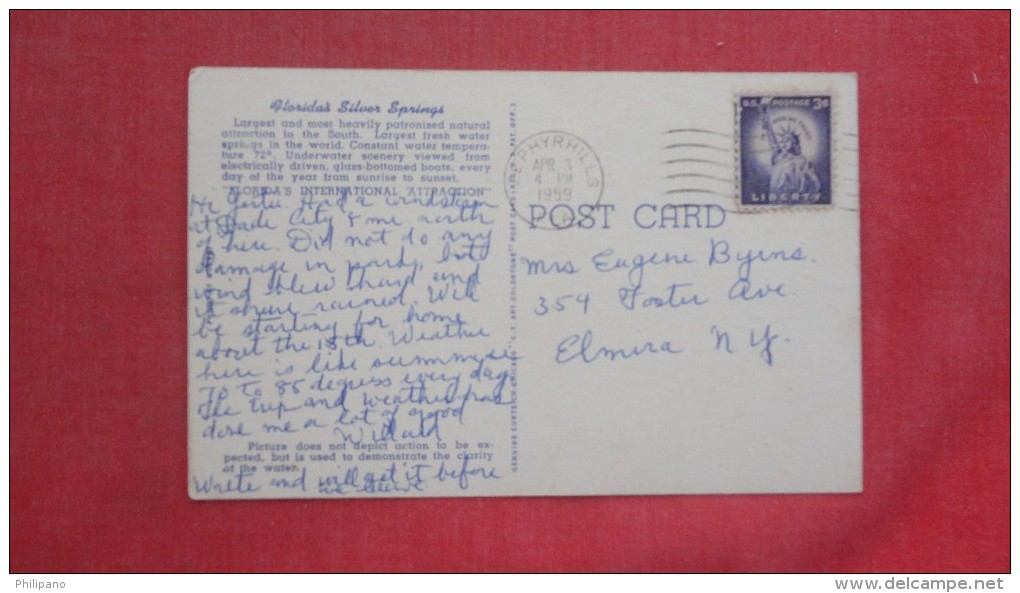 Florida's Silver Springs
Largest and most heavily patronised natural
attraction in the South. Largest fresh water
springs in the world. Constant water tempera-
ture 72°. Underwater scenery viewed from
electrically driven, glass-bottomed boats, every
day of the year from sunrise to sunset.
FLORIDA'S INTERNATIONAL ATTRACTION
Had a windstorm
at Dade City 8 mi north
of here. Did not do any
damage in park, but
wind blew hard and
it sure rained. Will
be starting for home
about the 15th. Weather
here is like summer
70 to 85 degress every day
The trip and weather has
done me a lot of good
Willard
Picture does not depict action to be ex-
pected, but is used to demonstrate the clarity
of the water.
Write and will get it before
we leave
GENUINE CURTEICH-CHICAGO "C.T. ART-COLORTONE" POST CARD (REG. U.S. PAT. OFF.)
ZEPHYRHILLS
APR 3
4 PM
1959
U.S. POSTAGE 3¢
IN GOD WE TRUST
LIBERTY
POST CARD
Mrs Eugene Byrns.
354 Foster Ave
Elmira N Y.
Philipano
www.delcampe.net